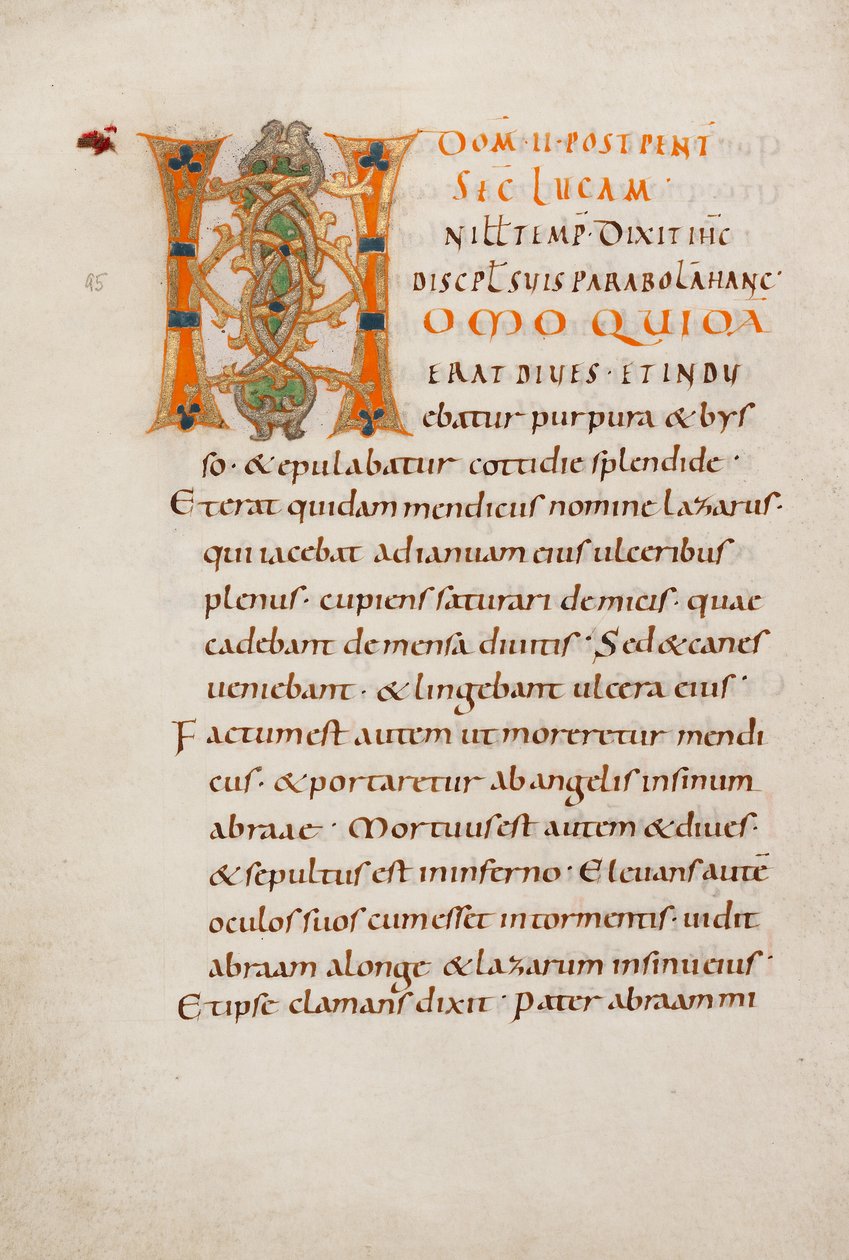 DOM̄·II·POST PENT̄
SEC̄ LUCAM·
IN ILŁ TEMP̄·DIXIT IHC̄
DISCPŁ SUIS PARABOLĀ HANC·
HOMO QUIDĀ
ERAT DIUES·ET INDU
ebatur purpura & bys
so·&epulabatur cottidie splendide·
Et erat quidam mendicus nomine lazarus·
qui iacebat ad ianuam eius ulceribus
plenus·cupiens saturari de micis·quae
cadebant de mensa diuitis·Sed & canes
ueniebant·& lingebant ulcera eius·
Factum est autem ut moreretur mendi
cus·& portaretur ab angelis in sinum
abraae·Mortuus est autem & diues·
& sepultus est in inferno·Eleuans autē
oculos suos cum esset in tormentis·uidit
abraam a longe & lazarum in sinu eius·
Et ipse clamans dixit·Pater abraam mi
95